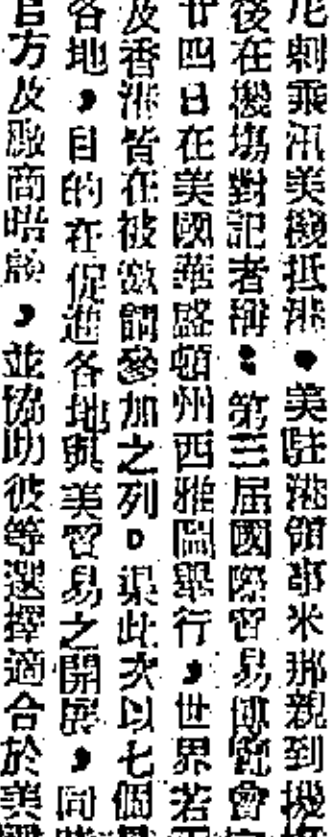 剌乘汎美機抵港。美駐港領事米那親到機
後在機場對記者稱：第三屆國際貿易博覽會
廿四日在美國華盛頓州西雅圖舉行，世界若
及香港皆在被邀請參加之列。渠此次以七個
各地，目的在促進各地與美貿易之開展，同
官方及廠商晤談，並協助彼等選擇適合於美